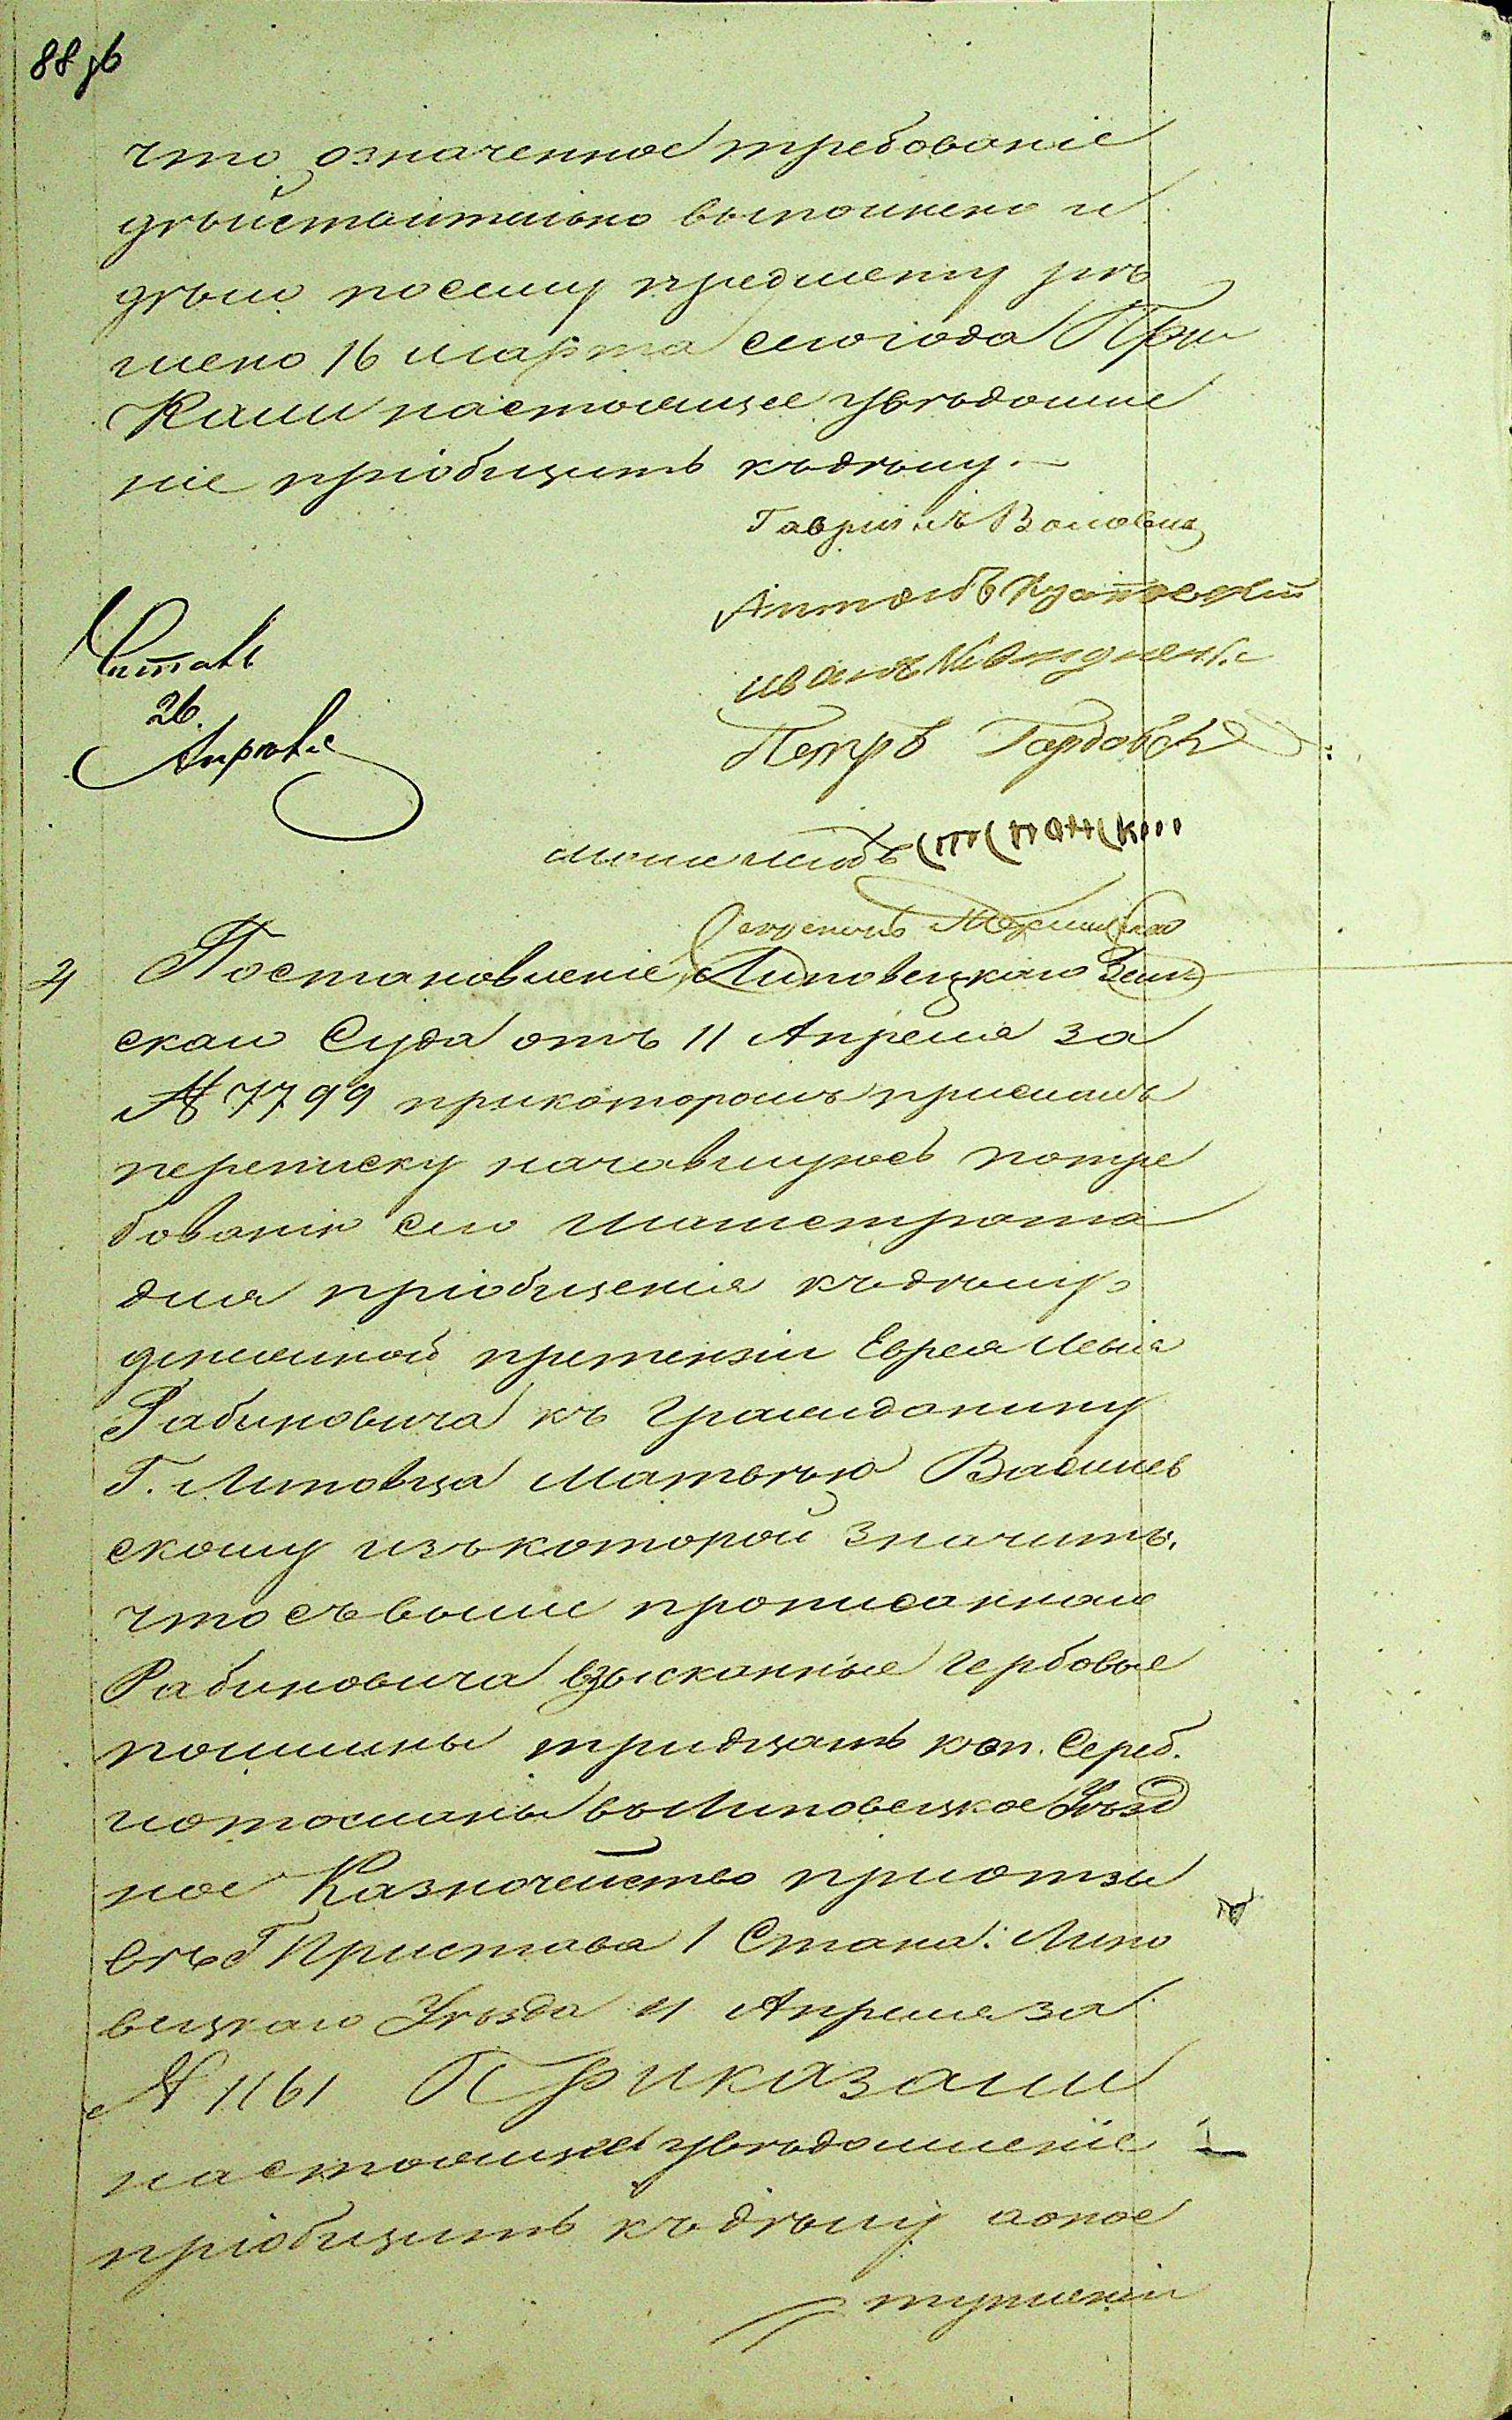 88 об
что означенное требованіе
дѣйствительно выполнено и
дѣло посему предмету рѣ
шено 16 марта сего года При
Кали настоящее увѣдомле
ніе пріобщить къ дѣлу.—
Гавріилъ
Антонъ
Иванъ
Петръ
Читалъ
26.
Апрѣля
4 Постановленіе Липовецкаго Зем
скаго Суда отъ 11 Апреля за
№ 7799 прикоторомъ прислалъ
переписку начавшуюсь потре
бованію сего Магистрата
для пріобщенія къ дѣлу
денежной претензіи Еврея Лейба
Рабиновича къ гражданину
Г. Липовца Матвѣю Василев
скому изъ которой значитъ.
что съ выше прописаннаго
Рабиновича взысканные гербовые
пошлины тридцать коп. Сереб.
и отосланы въ Липовецкое Уѣзд
ное Казначейство приотзы
вѣ Г Пристава 1 Стана: Липо
вецкаго Уѣзда 11 Апреля за
№ 1161 Приказали
настоящее увѣдомленіе
пріобщить къ дѣлу а о пос
тупленіи